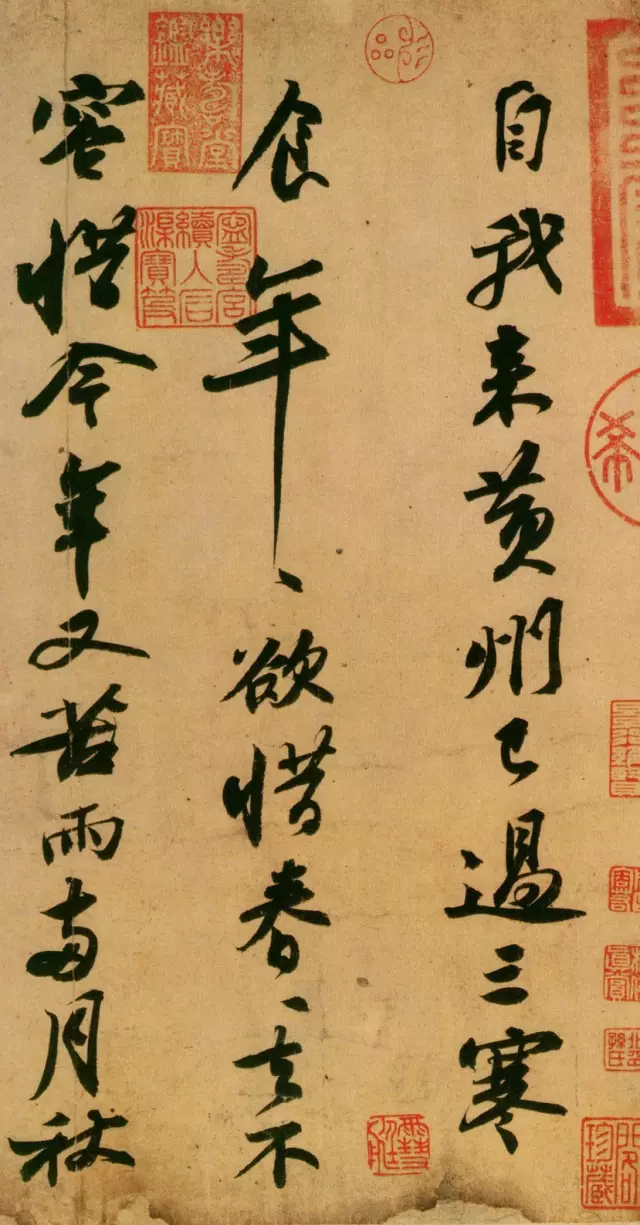 自我来黄州已過三寒
食年、欲惜春、去不
容惜今年又苦雨两月秋